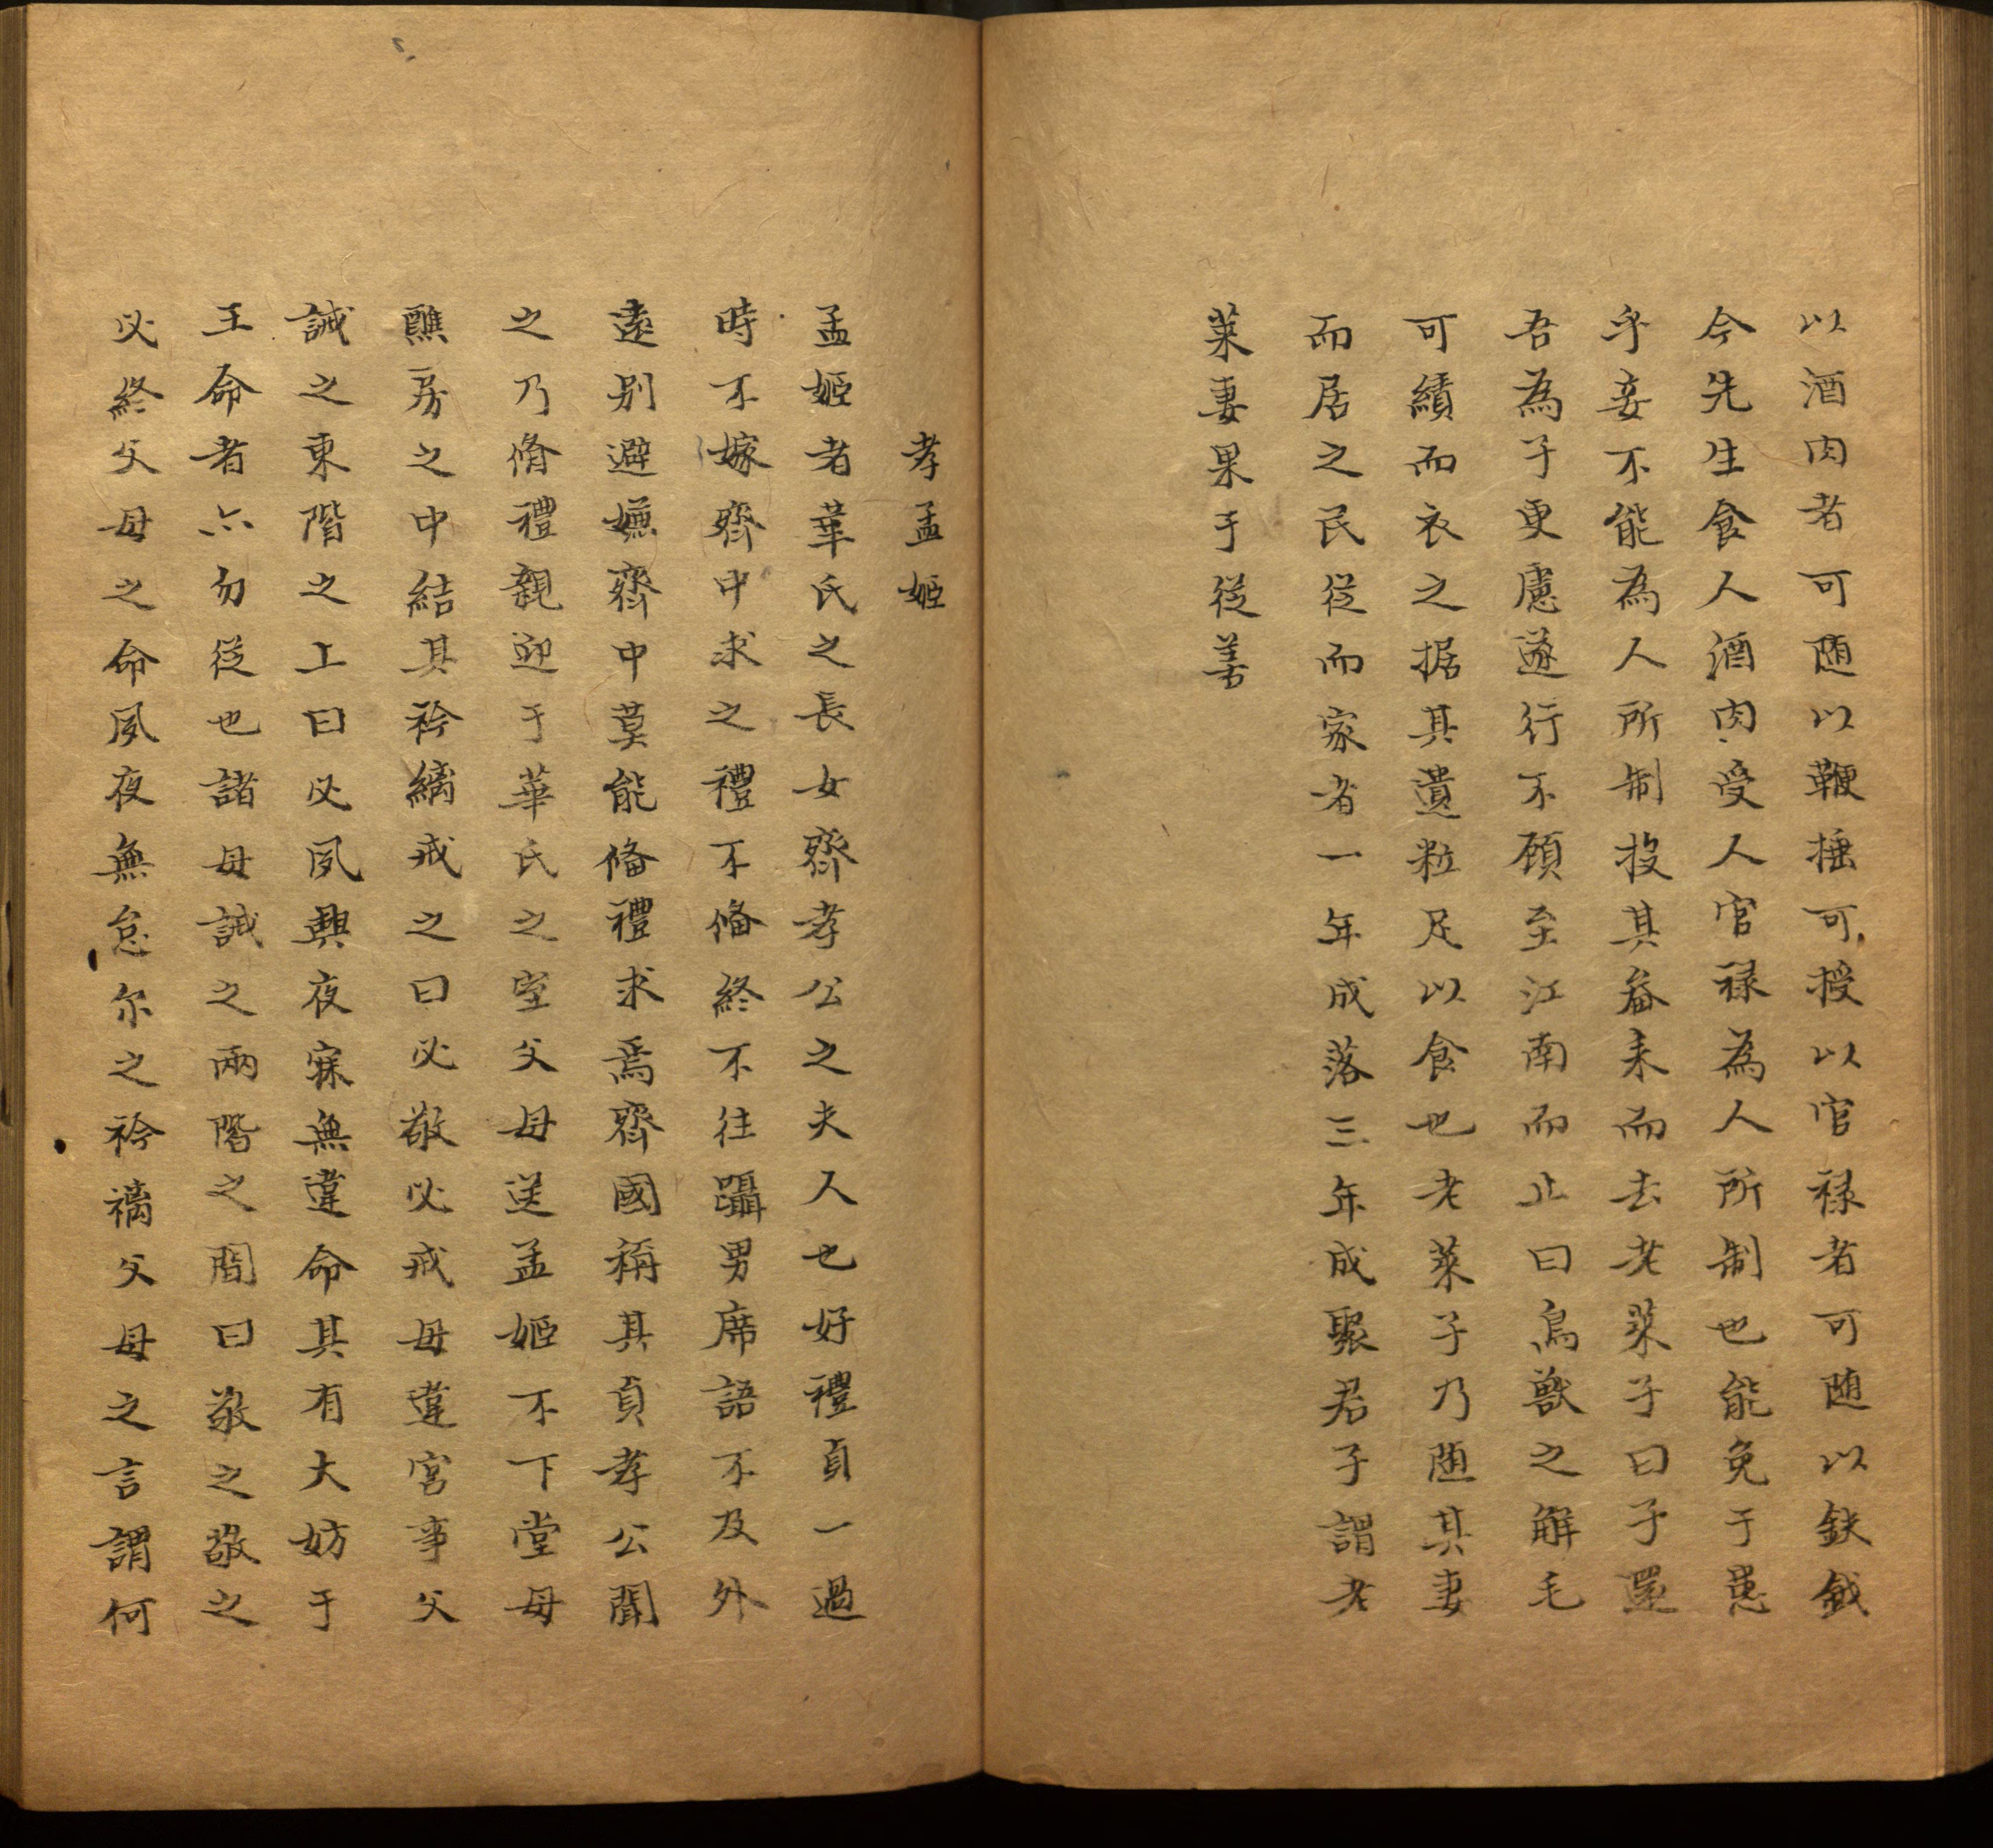 以酒肉者可随以鞭捶可授以官禄者可随以鈇鉞
今先生食人酒肉受人官禄為人所制也能免于患
乎妾不能為人所制投其畚耒而去老萊子曰子還
吾為子更慮遂行不顧至江南而止曰鳥獸之解毛
可績而衣之据其遺粒足以食也老萊子乃随其妻
而居之民從而家者一年成落三年成聚君子謂老
萊妻果于從善
孝孟姬
孟姬者華氏之長女齊孝公之夫人也好禮貞一過
時不嫁齊中求之禮不備終不往躡男席語不及外
遠别避嫌齊中莫能備禮求焉齊國稱其貞孝公聞
之乃脩禮親迎于華氏之室父母送孟姬不下堂母
醮房之中結其衿縭戒之曰必敬必戒毋違宮事父
誡之東階之上曰必夙興夜寐無違命其有大妨于
王命者亦勿從也諸母誡之兩階之間曰敬之敬之
必終父母之命夙夜無怠尔之衿褵父母之言謂何